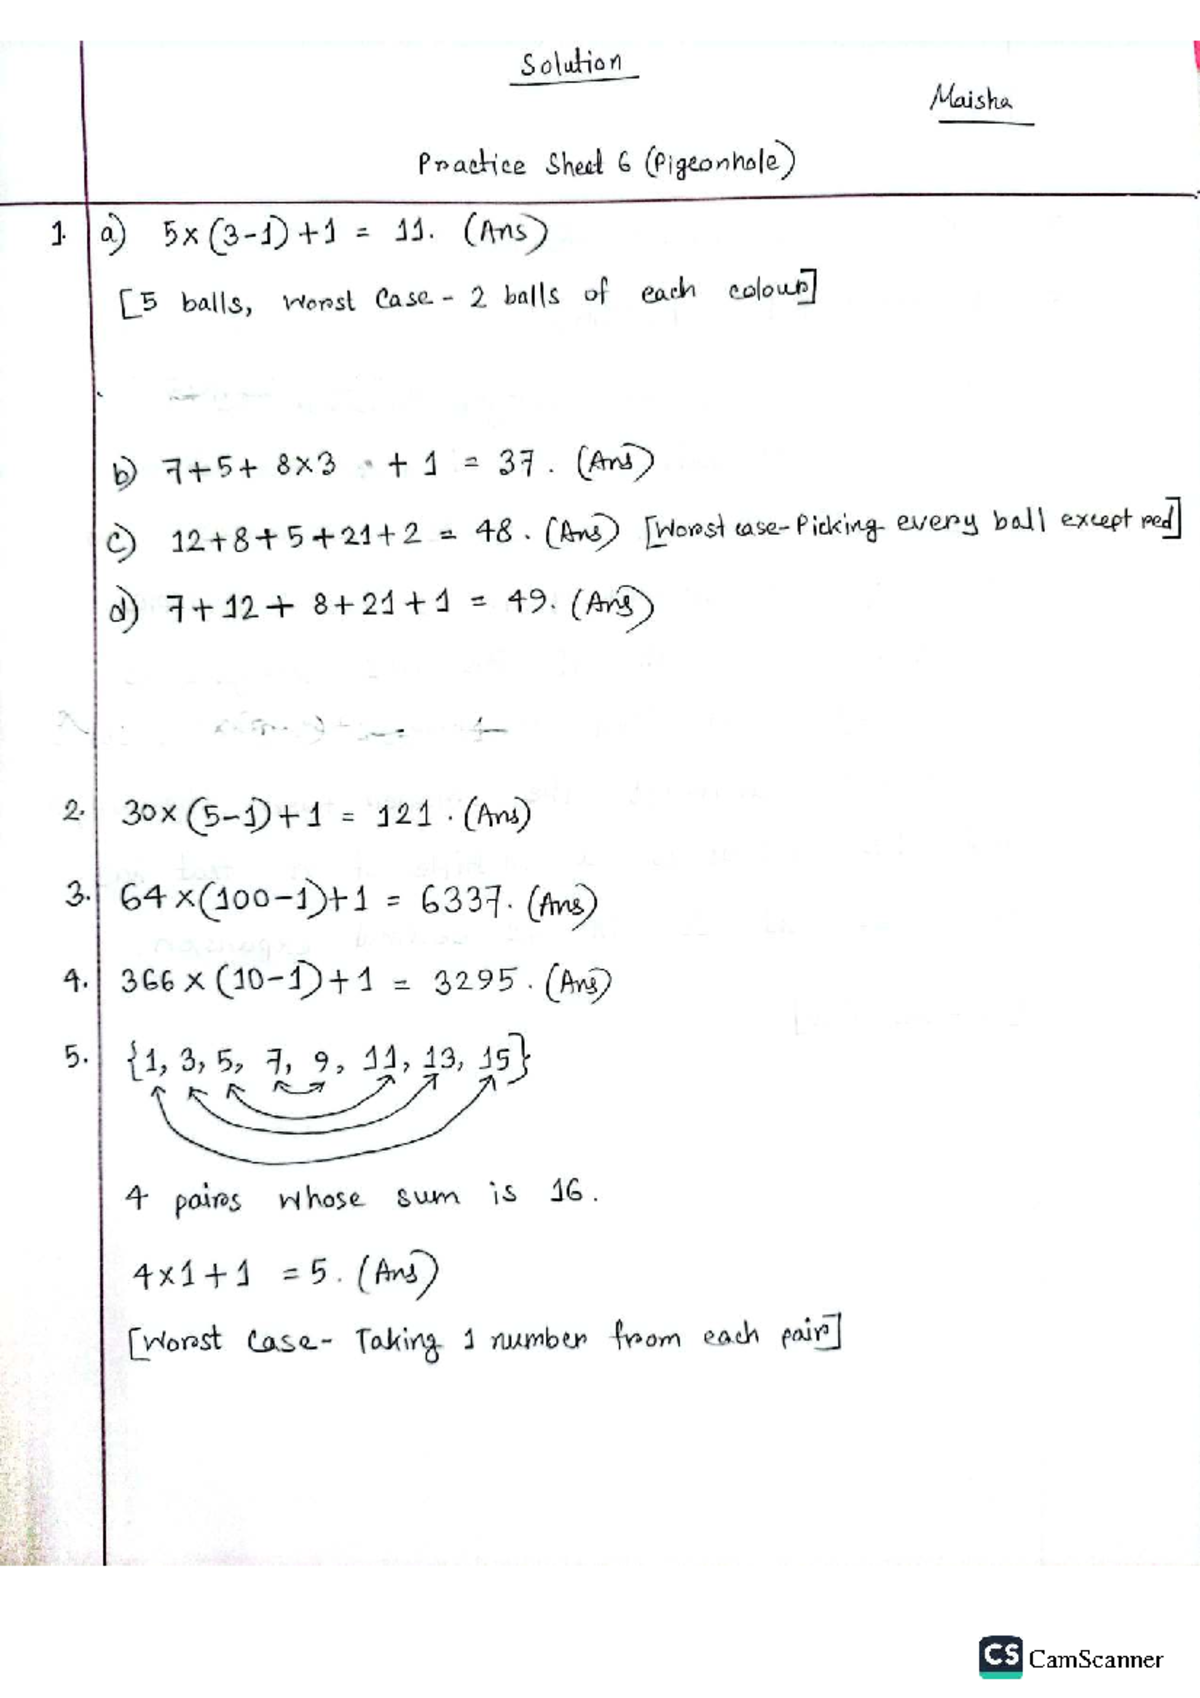 Solution
Maisha
Practice Sheet 6 (Pigeonhole)
1. a) 5×(3-1)+1 = 11. (Ans)
[5 balls, Worst Case - 2 balls of each colour]
b) 7+5+ 8×3 + 1 = 37. (Ans)
c) 12+8+5+21+2 = 48. (Ans) [Worst case - Picking every ball except red]
d) 7+12+ 8+21+1 = 49. (Ans)
2. 30×(5-1)+1 = 121. (Ans)
3. 64×(100-1)+1 = 6337. (Ans)
4. 366×(10-1)+1 = 3295. (Ans)
5. {1, 3, 5, 7, 9, 11, 13, 15}
4 pairs whose sum is 16.
4×1+1 = 5. (Ans)
[Worst Case - Taking 1 number from each pair]
CS CamScanner